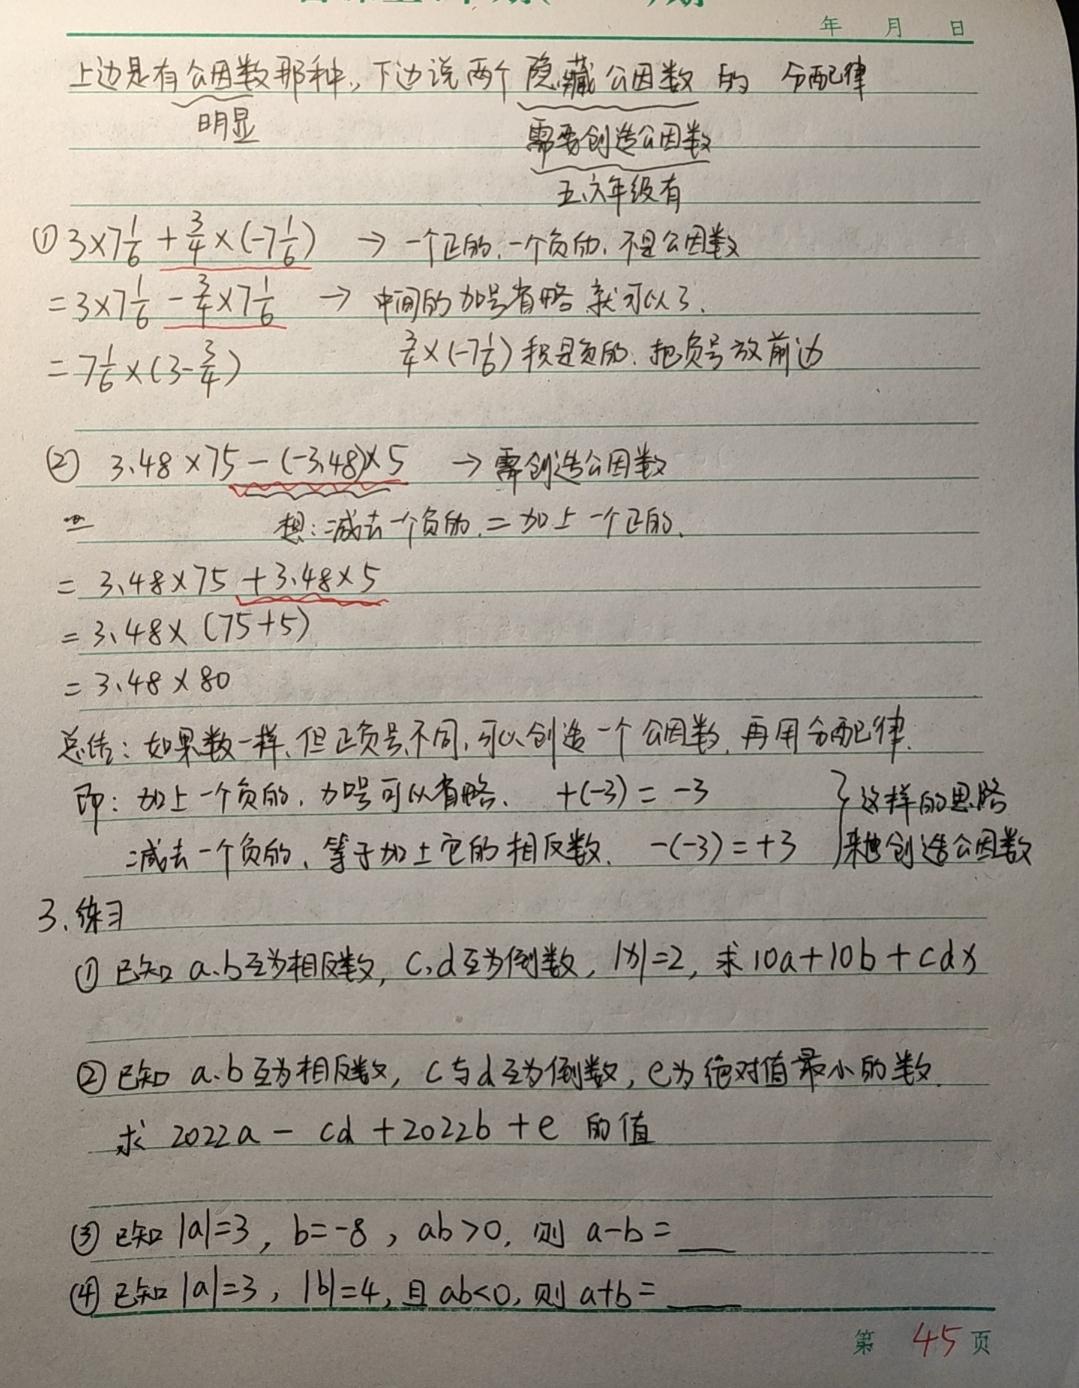 年 月 日
上边是有公因数那种,下边说两个隐藏公因数的 分配律
明显
需要创造公因数
五、六年级有
① 3×7 1/6 + 3/4 ×(-7 1/6) → 一个正的,一个负的,不是公因数
= 3×7 1/6 - 3/4 ×7 1/6 → 中间的加号省略就可以了.
= 7 1/6 ×(3- 3/4) 3/4 ×(-7 1/6) 积是负的,把负号放前边
② 3.48×75-(-3.48)×5 → 需创造公因数
= 想:减去一个负的,=加上一个正的.
= 3.48×75+3.48×5
= 3.48×(75+5)
= 3.48×80
总结:如果数一样,但正负号不同,可以创造一个公因数,再用分配律.
即:加上一个负的,加号可以省略. +(-3)=-3 } 这样的思路
减去一个负的,等于加上它的相反数. -(-3)=+3 来创造公因数
3.练习
① 已知a、b互为相反数,c,d互为倒数,|x|=2,求10a+10b+cdx
② 已知a、b互为相反数,c与d互为倒数,e为绝对值最小的数.
求2022a-cd+2022b+e的值
③ 已知|a|=3,b=-8,ab>0,则a-b=__
④ 已知|a|=3,|b|=4,且ab<0,则a+b=___
第 45 页